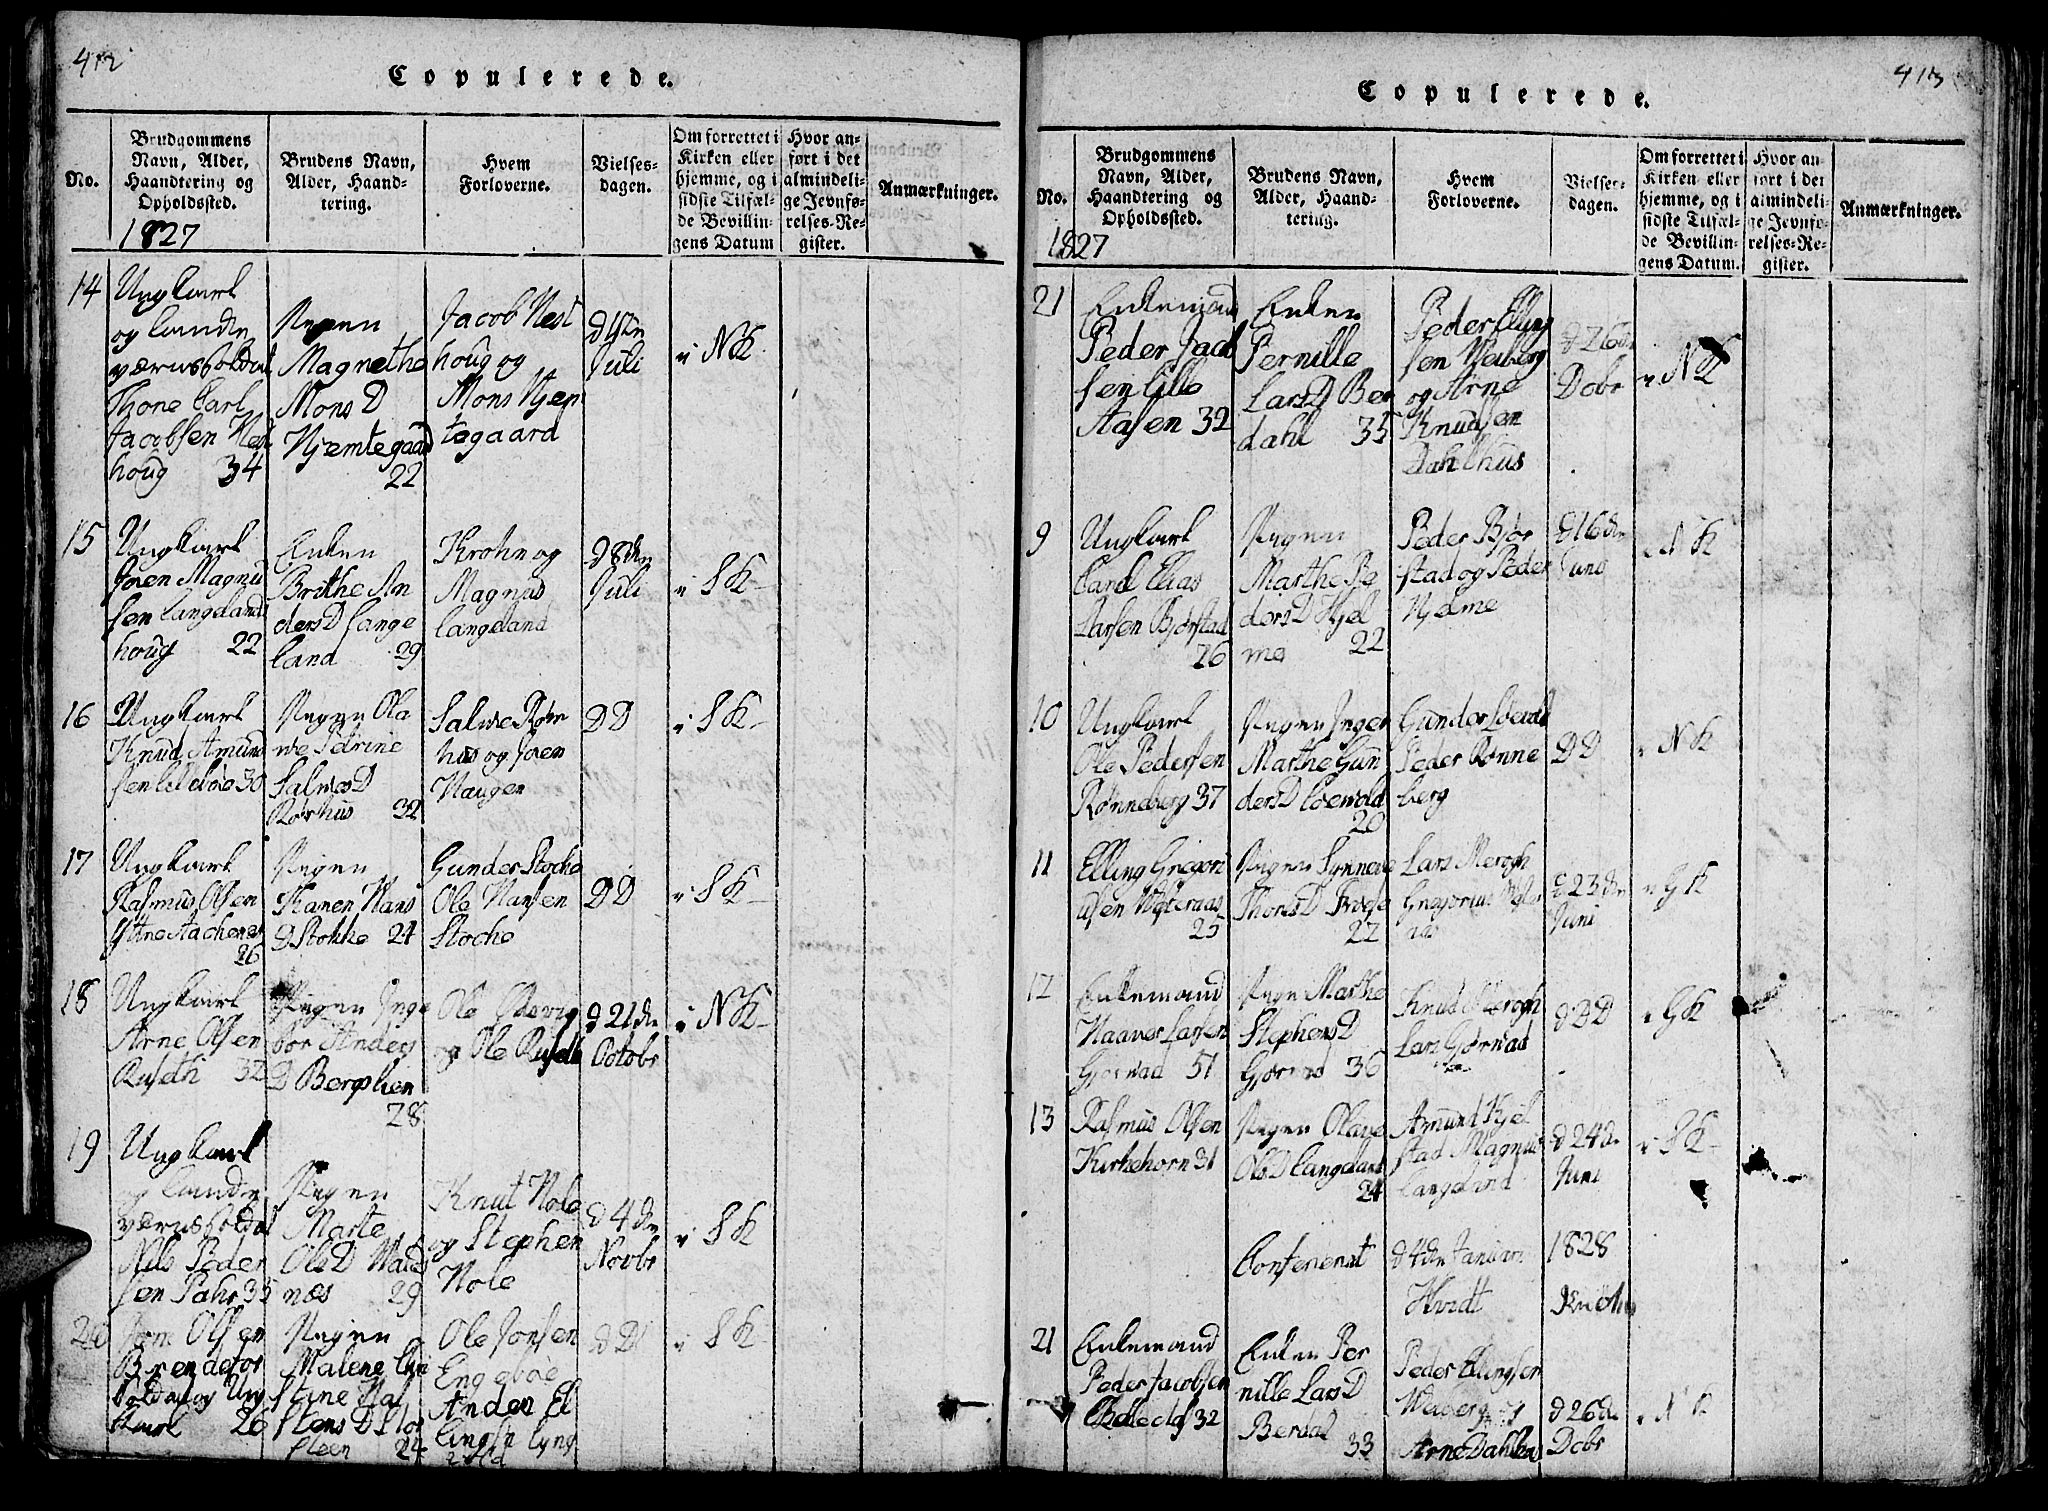 412
Copulerede.
No.
Brudgommens
Navn, Alder,
Haandtering og
Opholdssted.
Brudens Navn,
Alder, Haand-
tering.
Hvem
Forloverne.
Vielses-
dagen.
Om forrettet i
Kirken eller
hjemme, og i
sidste Tilfæl-
de Bevillin-
gens Datum
Hvor an-
ført i det
almindeli-
ge Jevnfø-
relses-Re-
gister.
Anmærkninger.
1827
14
Ungkarl
og Lande
værnssoldat
Thone Carl
Jacobsen Nest
houg 34
Pigen
Magnethe
Mons D
Hjemtegaard
22
Jacob Nest
houg og
Mons Hjem
tegaard
Juli
i NK
15
Ungkarl
Joen Magnu
sen Langelands
houg 22
Enken
Brithe An
dersD Lange
land 29
Krohn og
Magnus
Langeland
d 8de
Juli
i SK
16
Ungkarl
Knud Amund
sen Lillebøe 30
Pigen Ola
ve Petrine
SalvesD
Rørhus 32
Salve Rør
hus og Joen
Haugen
DD
i SK
17
Ungkarl
Rasmus Olsen
Ytre Aachenes
26
Pigen
Karen Hans
D Stokke 24
Gunder Stocke
Ole Hansen
Stocke
DD
i SK
18
Ungkarl
Arne Olsen
Ruseth 32
Pigen Inge
bor Anders
D Bergslien
28
Ole
og Ole Ruseth
d 21de
Octobr
i NK
19
Ungkarl
og Lande
værnssoldat
Nils Peder
sen Pahr 35
Pigen
Marte
OlsD Wards
næs 29
Knut Hole
og Stephen
Hole
d 4de
Novbr
i SK
20
Jorn Olsen
Brendefor
Soldat og Ung
karl 26
Pigen
Malene Chri
stine Hal
stensD Stor
steen 24
Ole Jonsen
Engebøe
Anders El
lingsen Lyng
dD
i SK
413
Copulerede.
No.
Brudgommens
Navn, Alder,
Haandtering og
Opholdssted.
Brudens Navn,
Alder, Haand-
tering.
Hvem
Forloverne.
Vielses-
dagen.
Om forrettet i
Kirken eller
hjemme, og i
sidste Tilfæl-
de Bevillin-
gens Datum.
Hvor an-
ført i det
almindeli-
ge Jevnfø-
relses-Re-
gister.
Anmærkninger.
1827
21
Enkemand
Peder Jacob
sen Lille
Aasen 32
Enken
Pernille
LarsD Ber
dahl 35
Peder Elling
sen Weiberg
og Arne
Knudsen
Dahlhus
d 26de
Dobr
i NK
9
Ungkarl
Carl Elias
Larsen Bjørstad
26
Pigen
Marthe Pe
dersD Hjel
me 22
Peder Bjør
stad og Peder
Hjelme
d 16de
Juno
i NK
10
Ungkarl
Ole Pedersen
Rønneberg 37
Pigen Inger
Marthe Gun
dersD Loevold
20
Gunder Loevold
Peder Rønne
berg
DD
i NK
11
Elling Gregori
usen Westeraas
25
Pigen Synneve
ThoresD
22
Lars Merogh
Gregorius Wester
aas
d 23de
Juni
i GK
12
Enkemand
Haaver Larsen
Gjørvad 51
Pigen Marthe
StephensD
Gjørvad 36
Knud Merogh
Lars Gjørvad
d DD
i GK
13
Rasmus Olsen
Kirkehorn 31
Pigen Olave
OlsD Langeland
24
Amund Kjel
stad Magnus
Langeland
d 24de
Juni
i SK
Confereret d 4de Januari 1828
Hvidt
21
Enkemand
Peder Jacobsen
32
Enken Per
nille LarsD
Berdal
33
Peder Ellingsen
Weiberg og
Arne Dahlhus
d 26de
Dobr
i NK